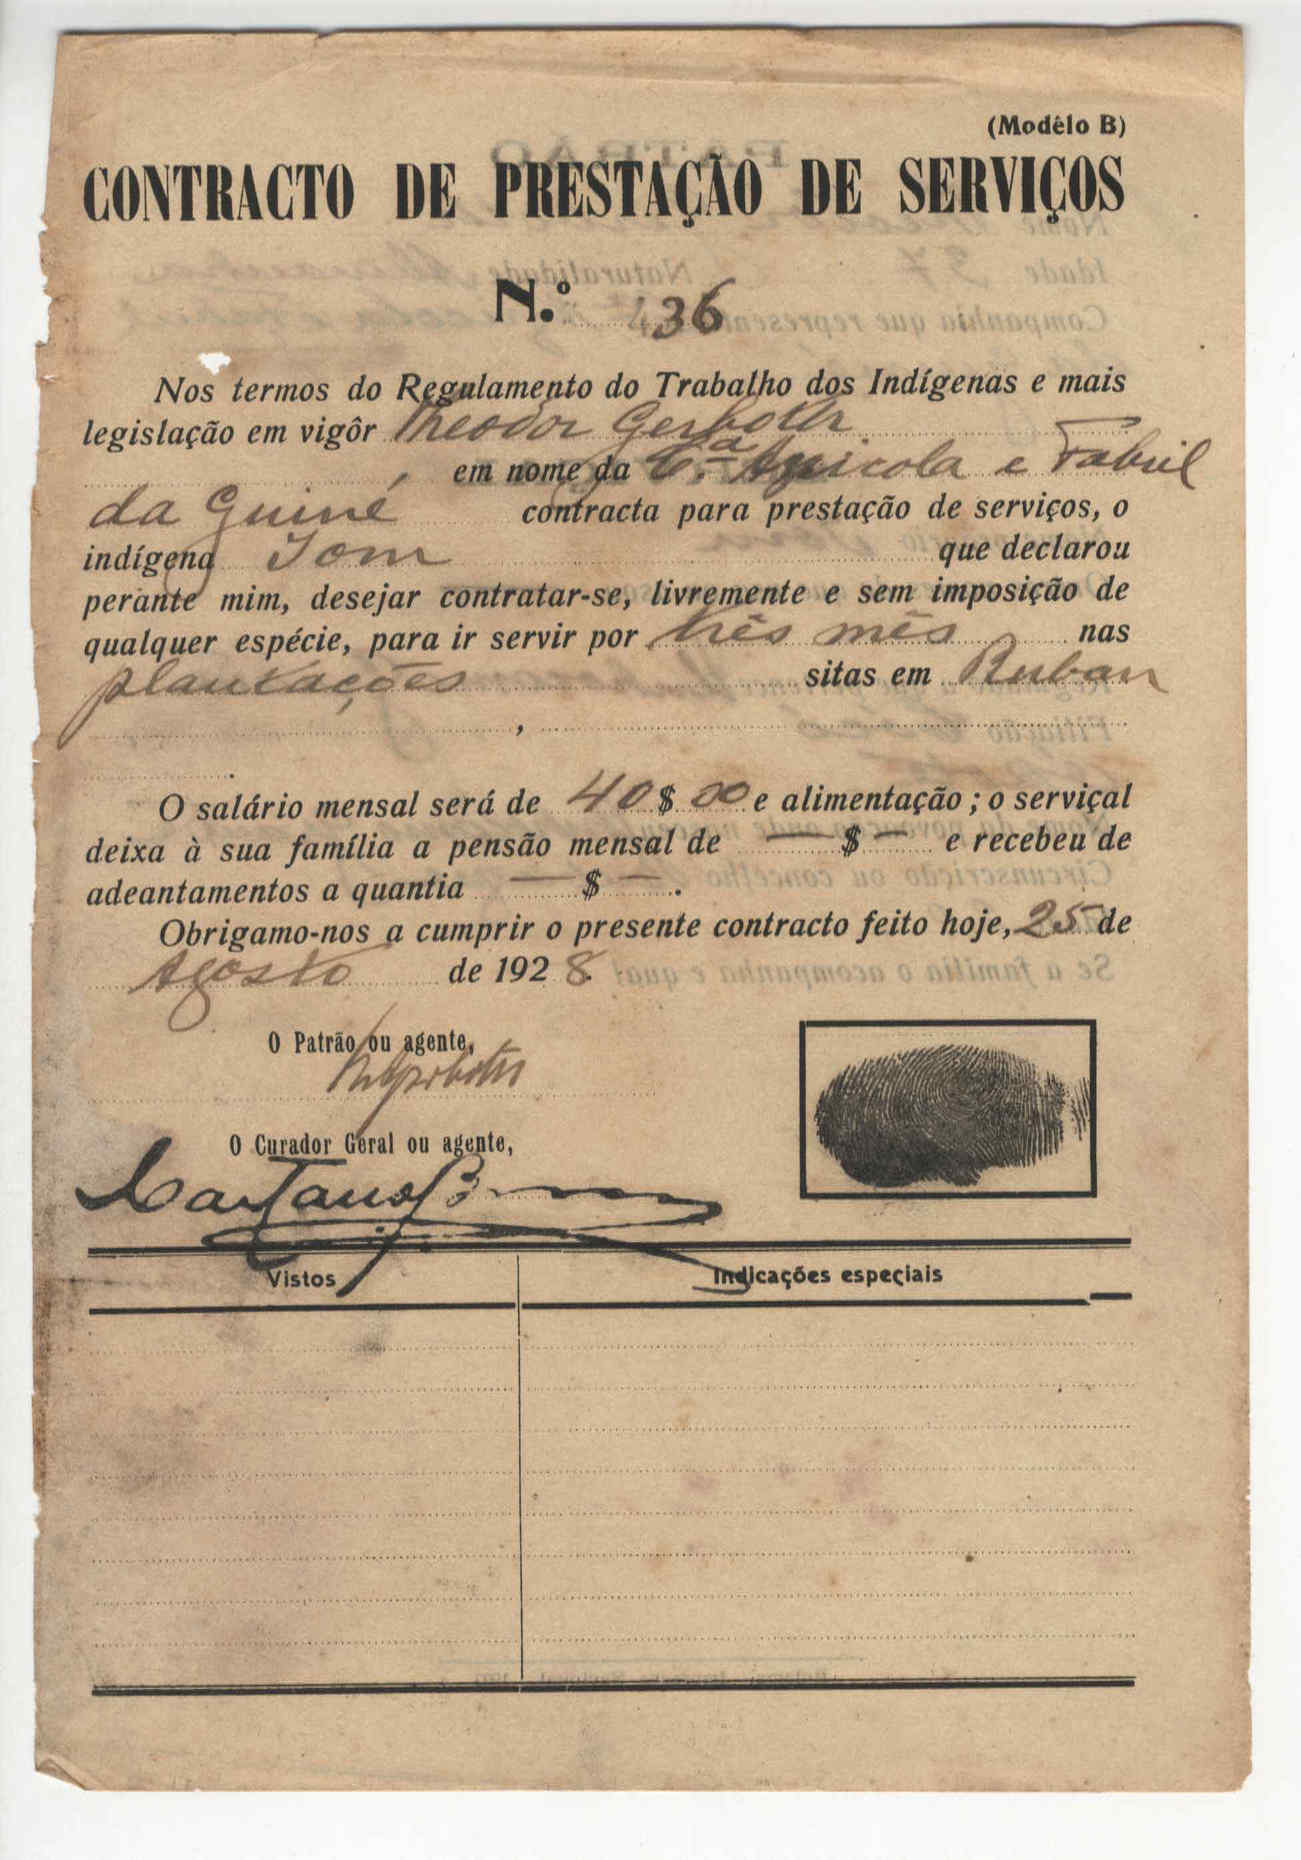 (Modêlo B)
CONTRACTO DE PRESTAÇÃO DE SERVIÇOS
N.º 136
Nos termos do Regulamento do Trabalho dos Indígenas e mais
legislação em vigôr Theodor Gerbothe
, em nome da C.ª Agricola e Fabril
da Guiné contracta para prestação de serviços, o
indígena Tom que declarou
perante mim, desejar contratar-se, livremente e sem imposição de
qualquer espécie, para ir servir por três mês nas
plantações sitas em Ruban
,
.
O salário mensal será de 40 $ 00 e alimentação; o serviçal
deixa à sua família a pensão mensal de — $ — e recebeu de
adeantamentos a quantia — $ — .
Obrigamo-nos a cumprir o presente contracto feito hoje, 25 de
Agosto de 1928.
O Patrão ou agente,
O Curador Geral ou agente,
Caetano
Vistos Indicações especiais